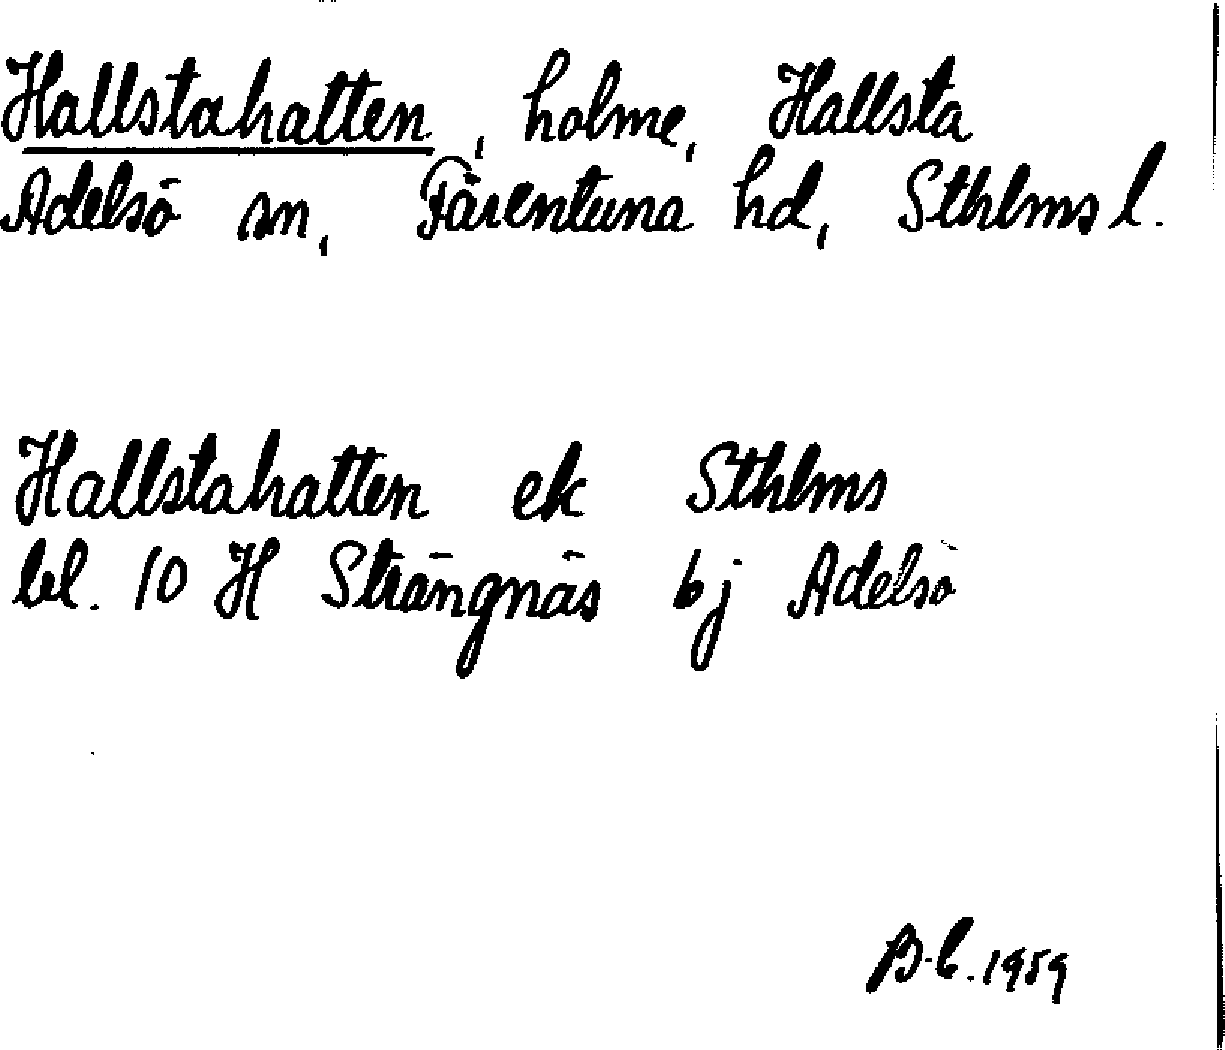 Hallstahatten, holme, Hallsta
Adelsö sn, Färentuna hd, Sthlms l.
Hallstahatten ek Sthlms
bl. 10 H Strängnäs bj Adelsö
B.C. 1959